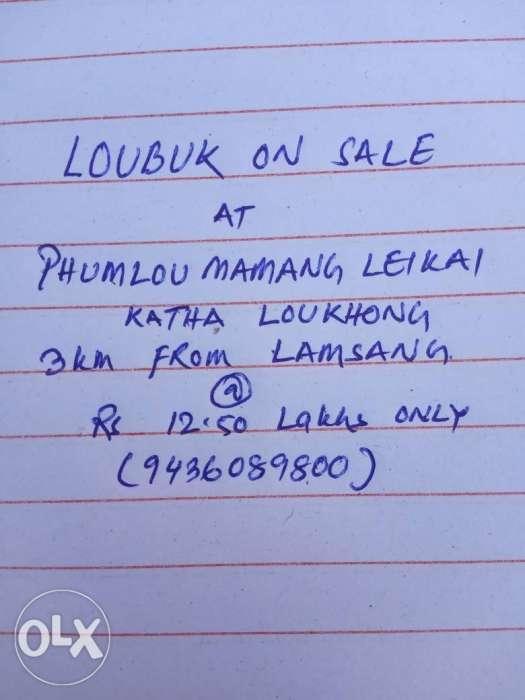 LOUBUK ON SALE
AT
PHUMLOU MAMANG LEIKAI
KATHA LOUKHONG
3 km FROM LAMSANG.
@
Rs 12.50 Lakhs ONLY
(9436089800)
OLX